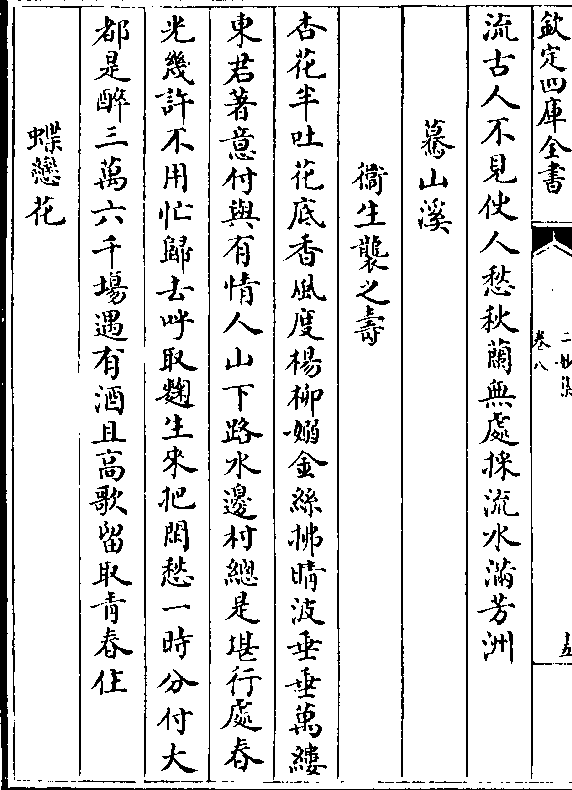 欽定四庫全書
二妙集
卷八
流古人不見使人愁秋蘭無處採流水滿芳洲
驀山溪
衞生襲之壽
杏花半吐花底香風度楊柳嫋金絲拂晴波垂垂萬縷
東君著意付與有情人山下路水邊村總是堪行處春
光幾許不用忙歸去呼取麴生來把閒愁一時分付大
都是醉三萬六千場遇有酒且高歌留取青春住
蝶戀花